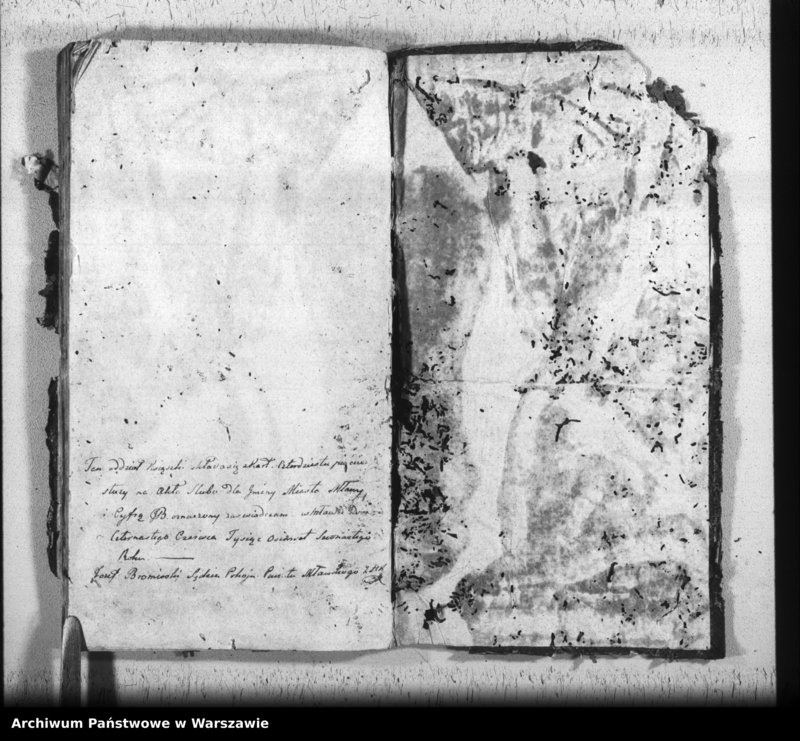 Ten oddział Książki składa się z Kart Czterdziestu pięciu
służy na Akta Slubu dla Gminy Miasta Mławy
Cyfrą B oznaczony zaświadczam w Mławie Dnia
Czternastego Czerwca Tysiąc Osiemset
Roku
Józef Sędzia Pokoju Powiatu Mławskiego
Archiwum Państwowe w Warszawie